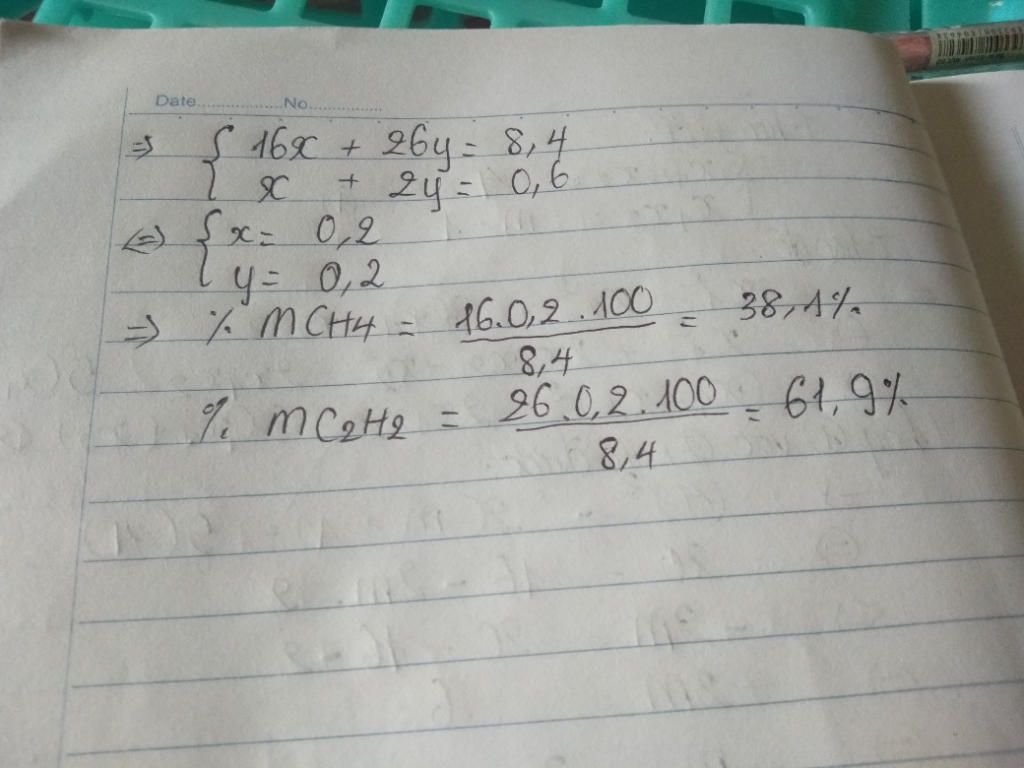 Date..................No................
=> { 16x + 26y = 8,4
x + 2y = 0,6
<=> { x = 0,2
y = 0,2
=> % mCH4 = 16.0,2.100 / 8,4 = 38,1%
% mC2H2 = 26.0,2.100 / 8,4 = 61,9%